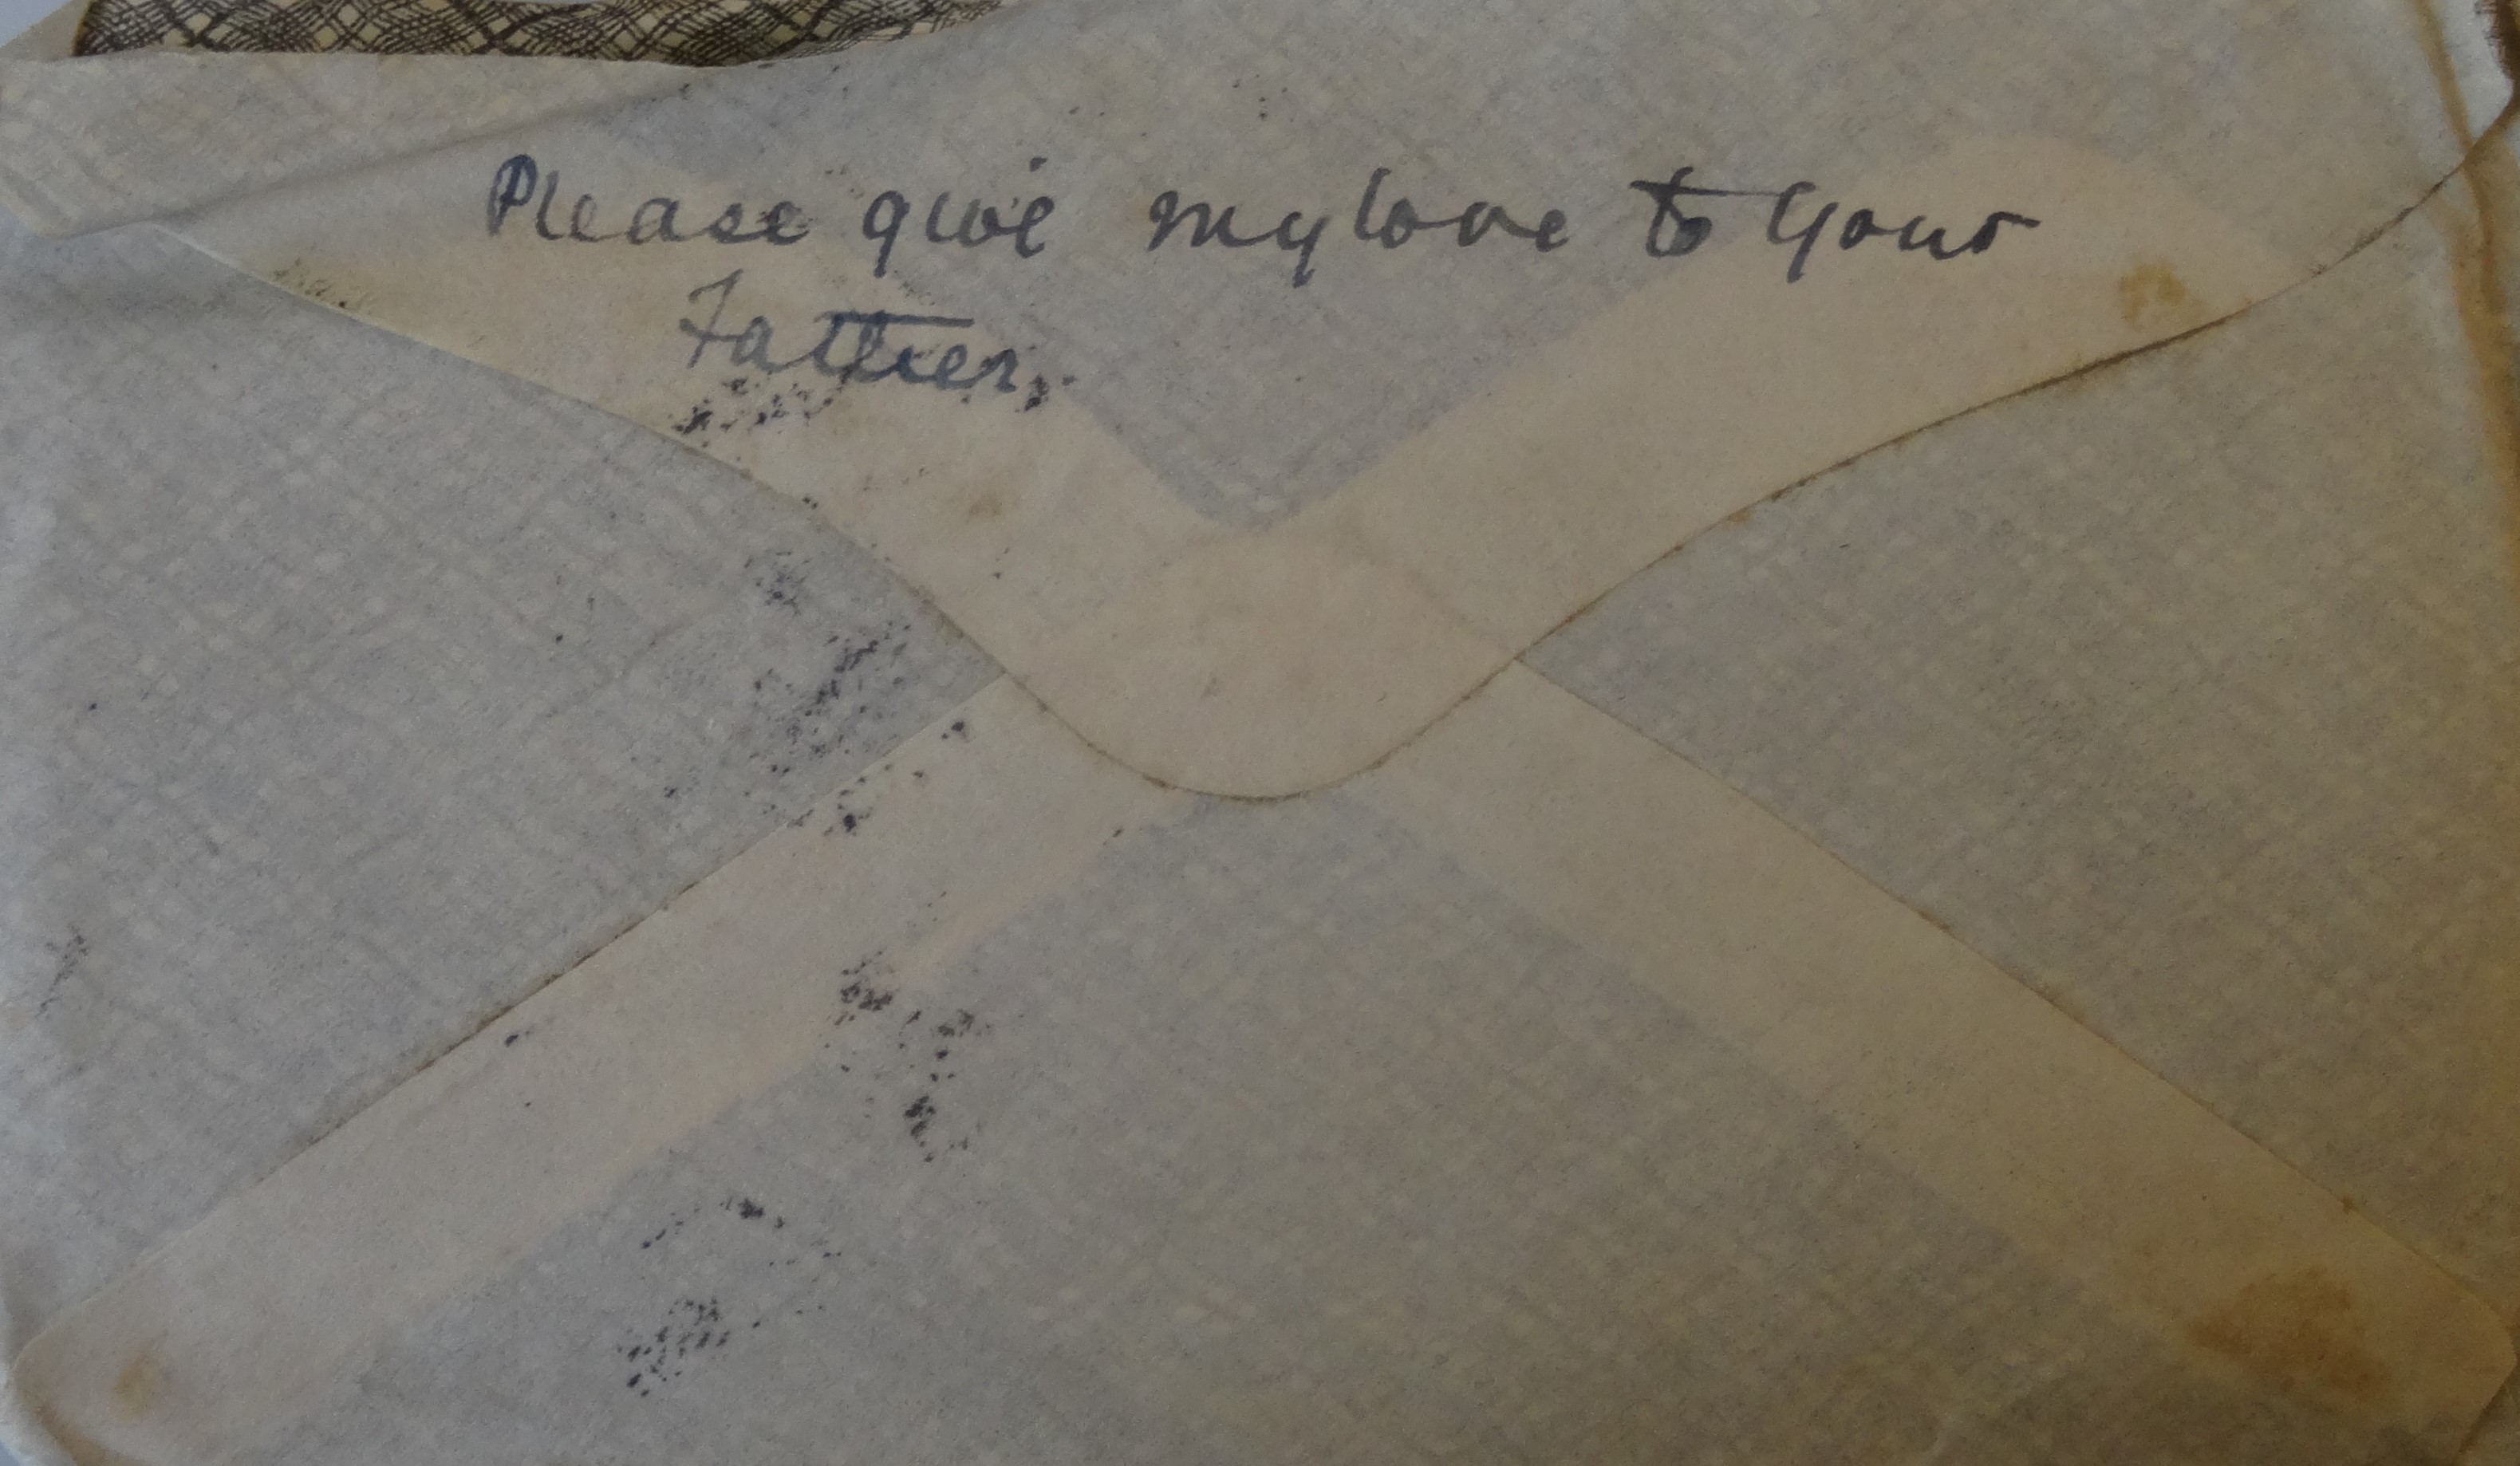 Please give my love to your
Father.